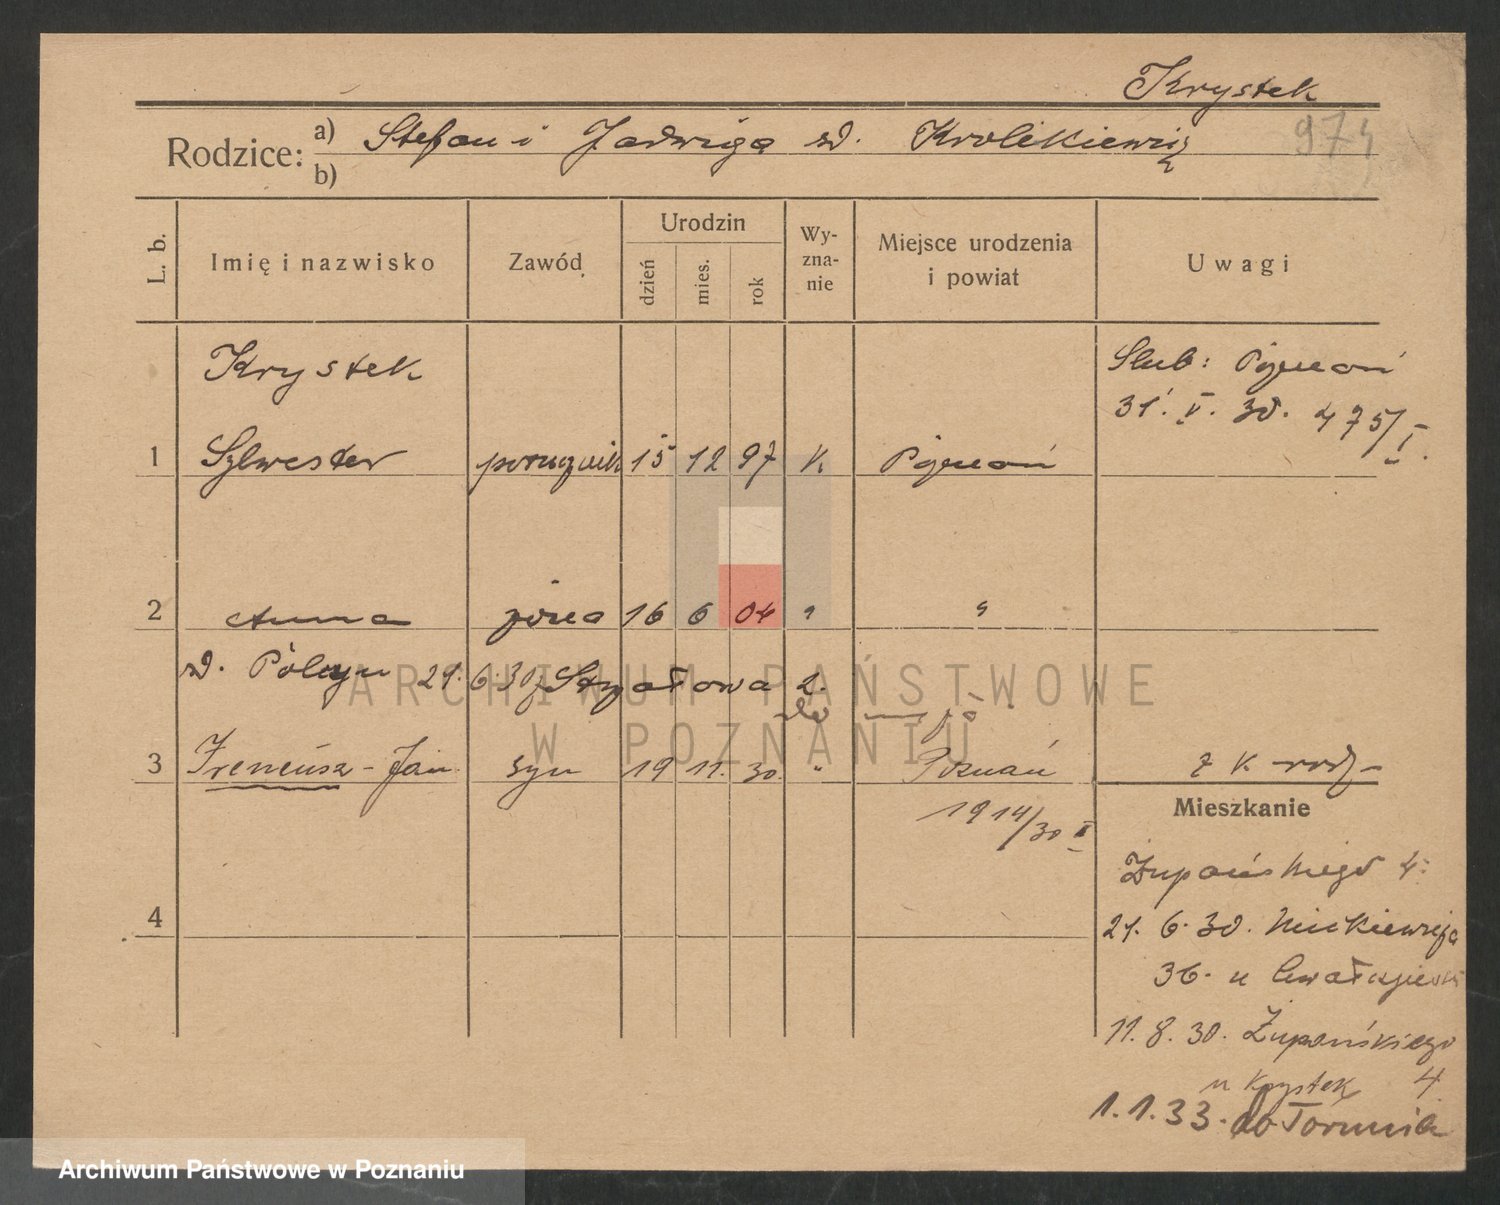 Krystek
Rodzice: a) Stefan i Jadwiga zd. Krolikiewicz
974
b)
L. b. Imię i nazwisko Zawód Urodzin dzień mies. rok Wy-zna-nie Miejsce urodzenia i powiat Uwagi
Krystek
Ślub: Poznań
31. V. 30. 475/I.
1 Sylwester porucznik 15 12 97 K Poznań
2 Anna żona 16 6 04 " "
zd. 21.6.30 Strzałowa 2.
do męża
3 Ireneusz - Jan syn 19 11. 30. " Poznań z k rodz
1914/30 II
Mieszkanie
Żupańskiego 4.
4
21. 6. 30. Mickiewicza
36. u
11. 8. 30. Żupańskiego
u Krystek 4
1. 1. 33. do Torunia
ARCHIWUM PAŃSTWOWE
W POZNANIU
Archiwum Państwowe w Poznaniu